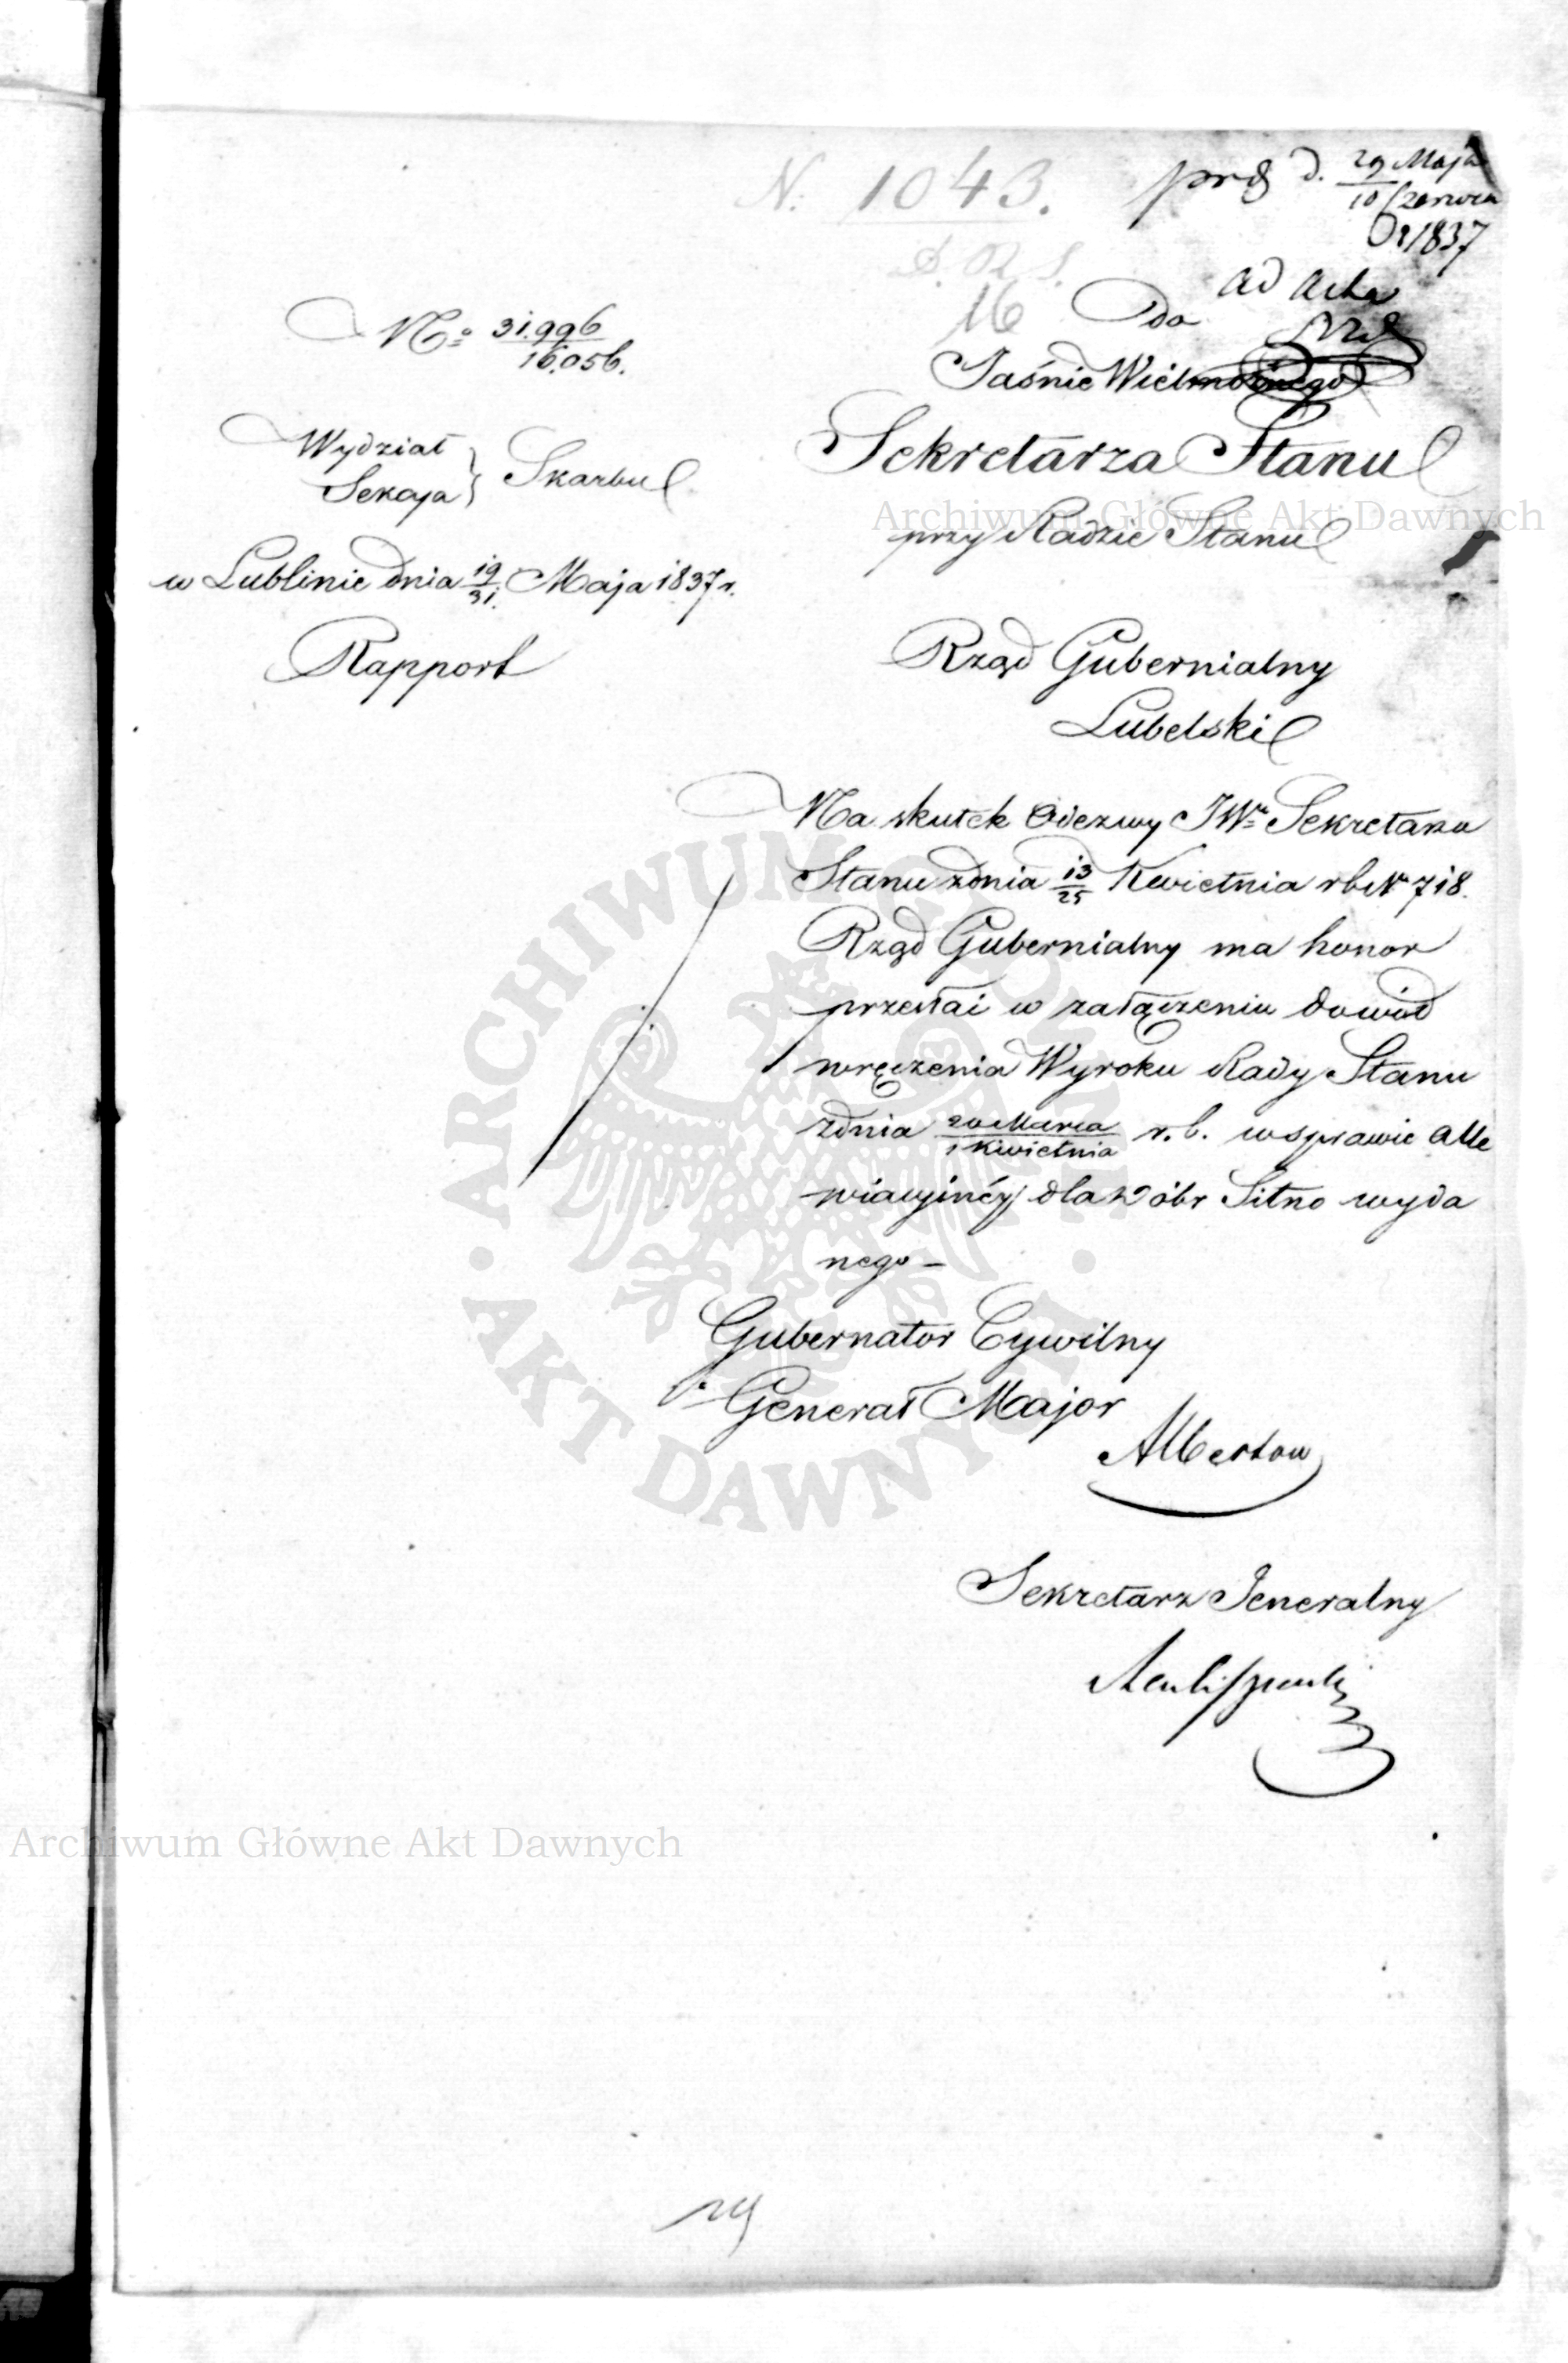 N. 1043.
prz d. 29 Maja
10 Czerwca
1837
ad acta
16
No 31.996
16.056.
Do
Jaśnie Wielmożnego
Wydział
Sekcya } Skarbu
Sekretarza Stanu
przy Radzie Stanu
w Lublinie dnia 19/31. Maja 1837 r.
Rapport
Rząd Gubernialny
Lubelski
Na skutek Odezwy JWo Sekretarza
Stanu zdnia 13/25 Kwietnia rb No 718.
Rząd Gubernialny ma honor
przesłać w załączeniu dowód
wręczenia Wyroku Rady Stanu
zdnia 20 Marca / 1 Kwietnia r.b. w sprawie Alle
wiacyjnéy dla Dóbr Sitno wyda
nego –
Gubernator Cywilny
Generał Major
Albertow
Sekretarz Jeneralny
Archiwum Główne Akt Dawnych
Archiwum Główne Akt Dawnych
ARCHIWUM GŁÓWNE · AKT DAWNYCH ·